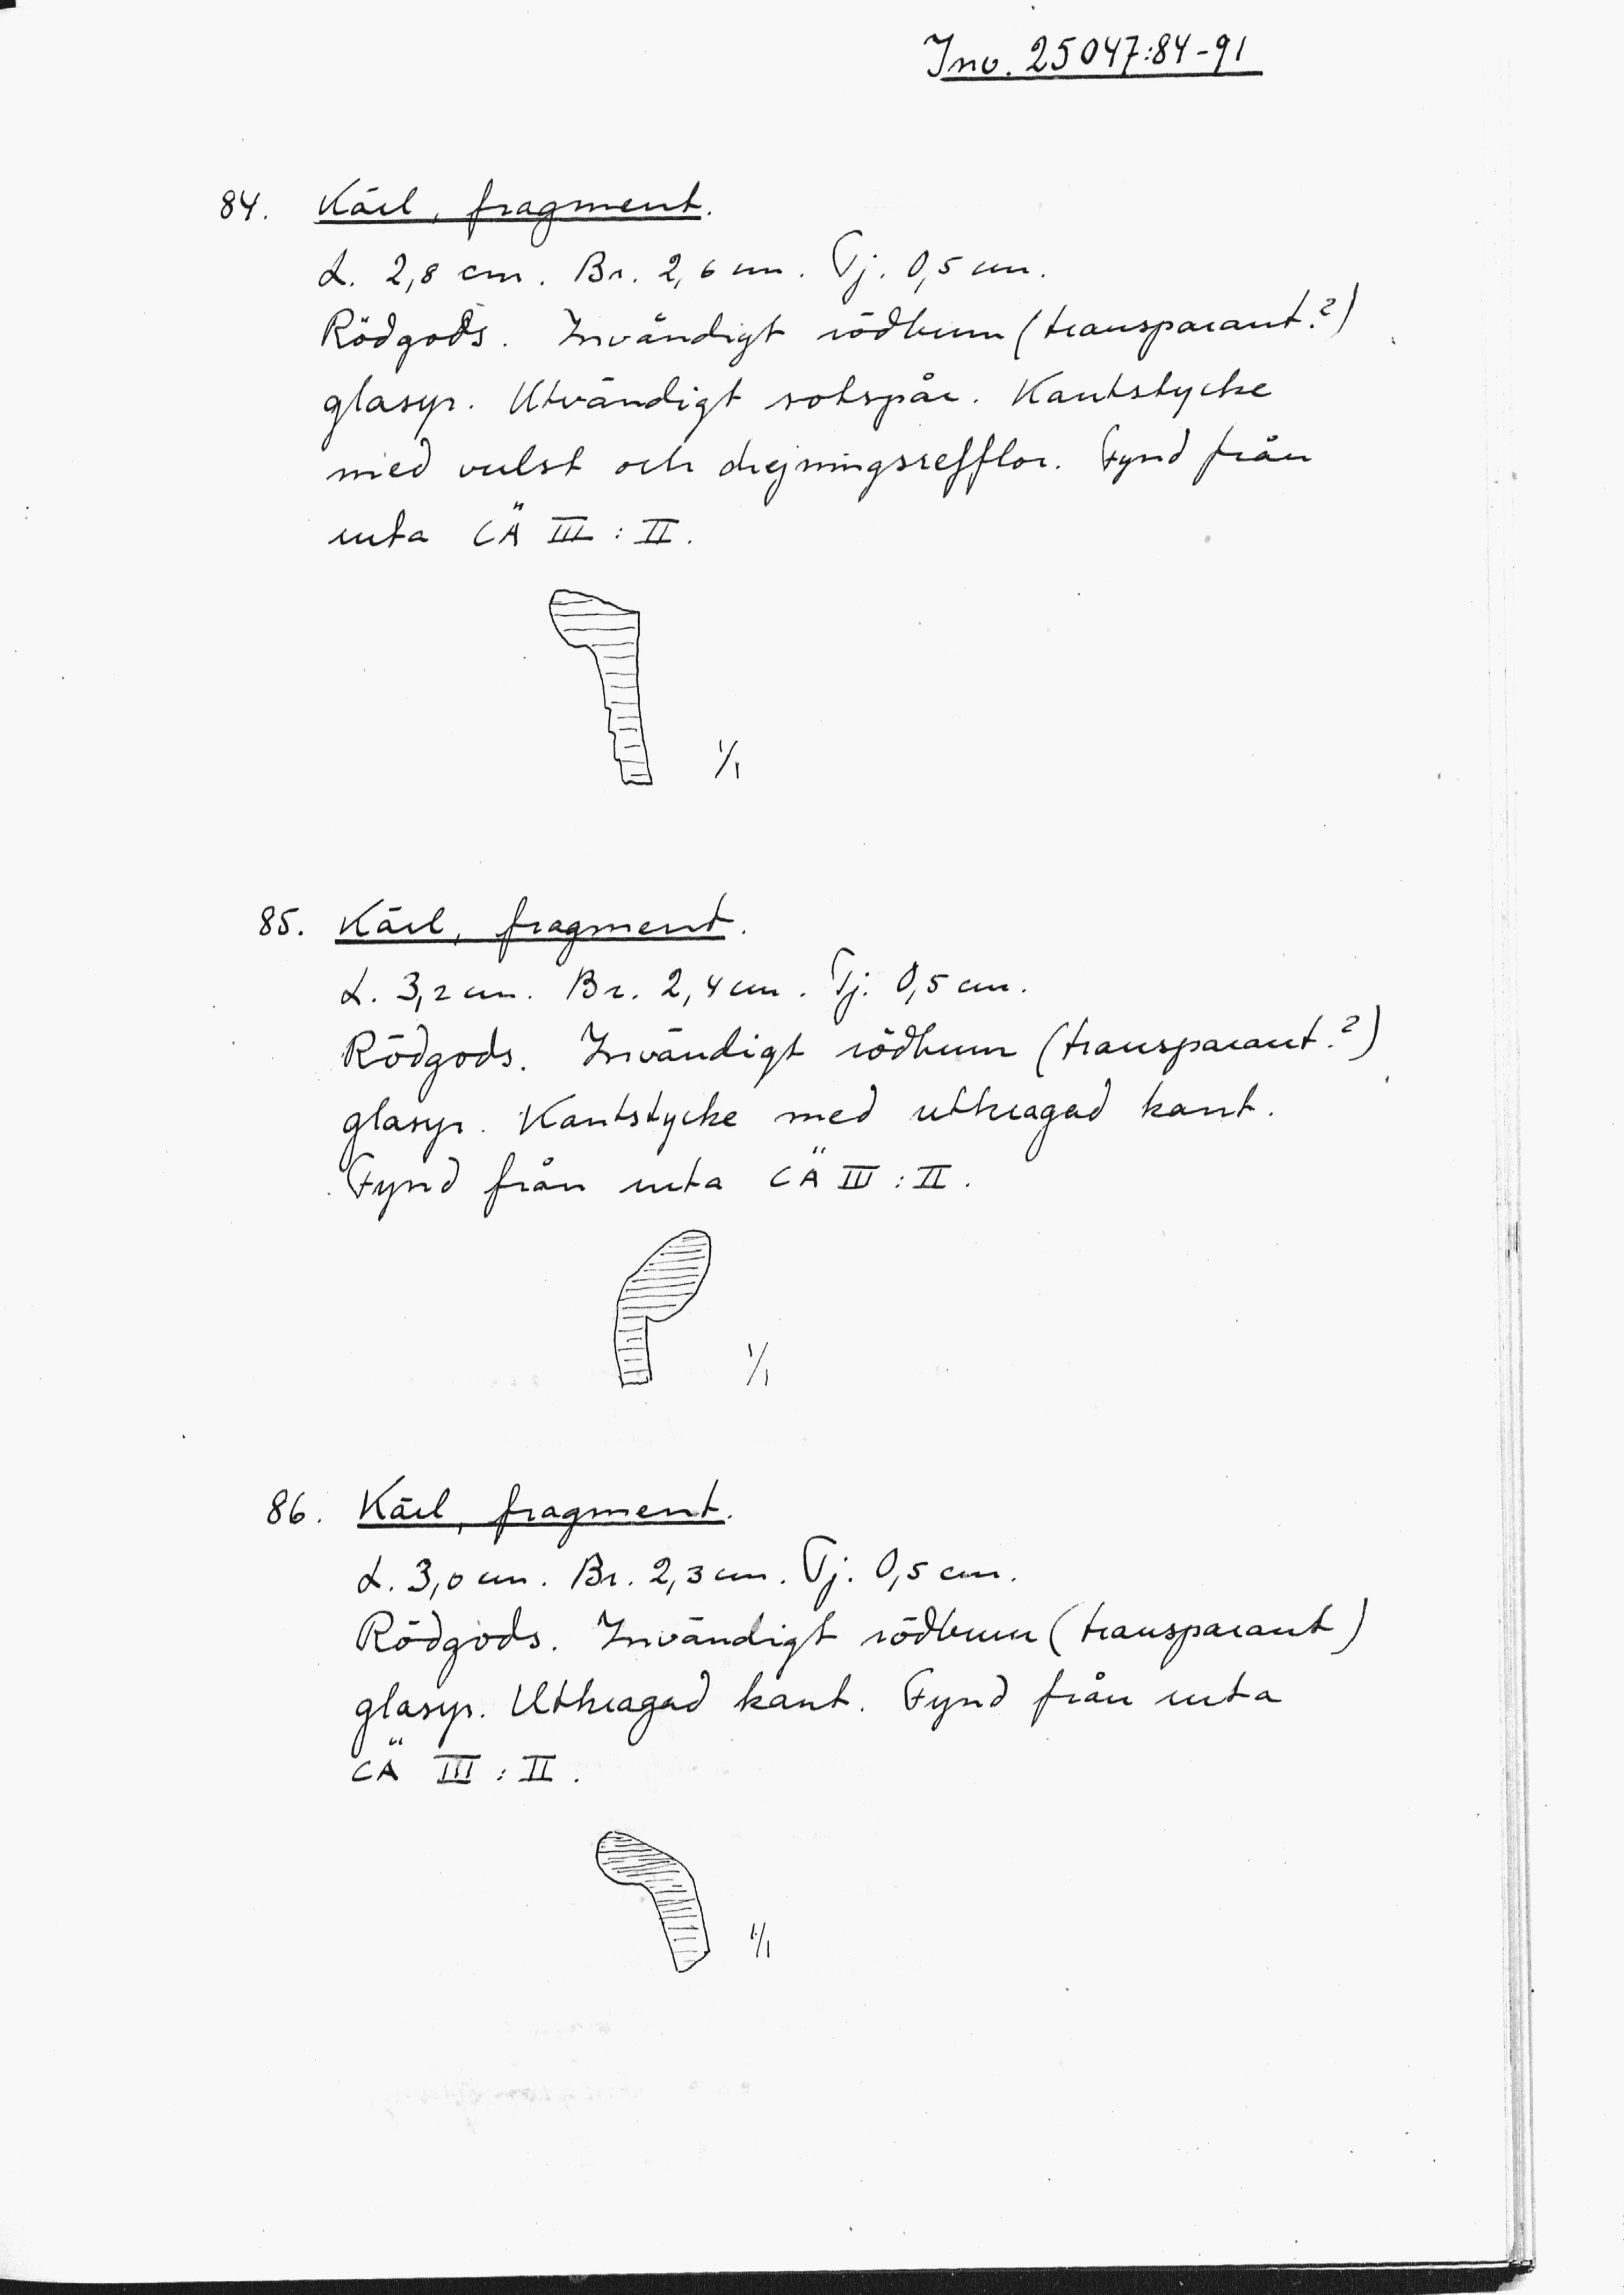 Inv. 25047:84-91
84. Kärl, fragment.
L. 2,8 cm. Br. 2,6 cm. Tj. 0,5 cm.
Rödgods. Invändigt rödbrun (transparant?)
glasyr. Utvändigt sotspår. Kantstycke
med vulst och drejningsrefflor. Fynd från
ruta CÄ III : II.
1/1
85. Kärl, fragment.
L. 3,2 cm. Br. 2,4 cm. Tj. 0,5 cm.
Rödgods. Invändigt rödbrun (transparant?)
glasyr. Kantstycke med utkragad kant.
Fynd från ruta CÄ III : II.
1/1
86. Kärl, fragment.
L. 3,0 cm. Br. 2,3 cm. Tj. 0,5 cm.
Rödgods. Invändigt rödbrun (transparant)
glasyr. Utkragad kant. Fynd från ruta
CÄ III : II.
1/1